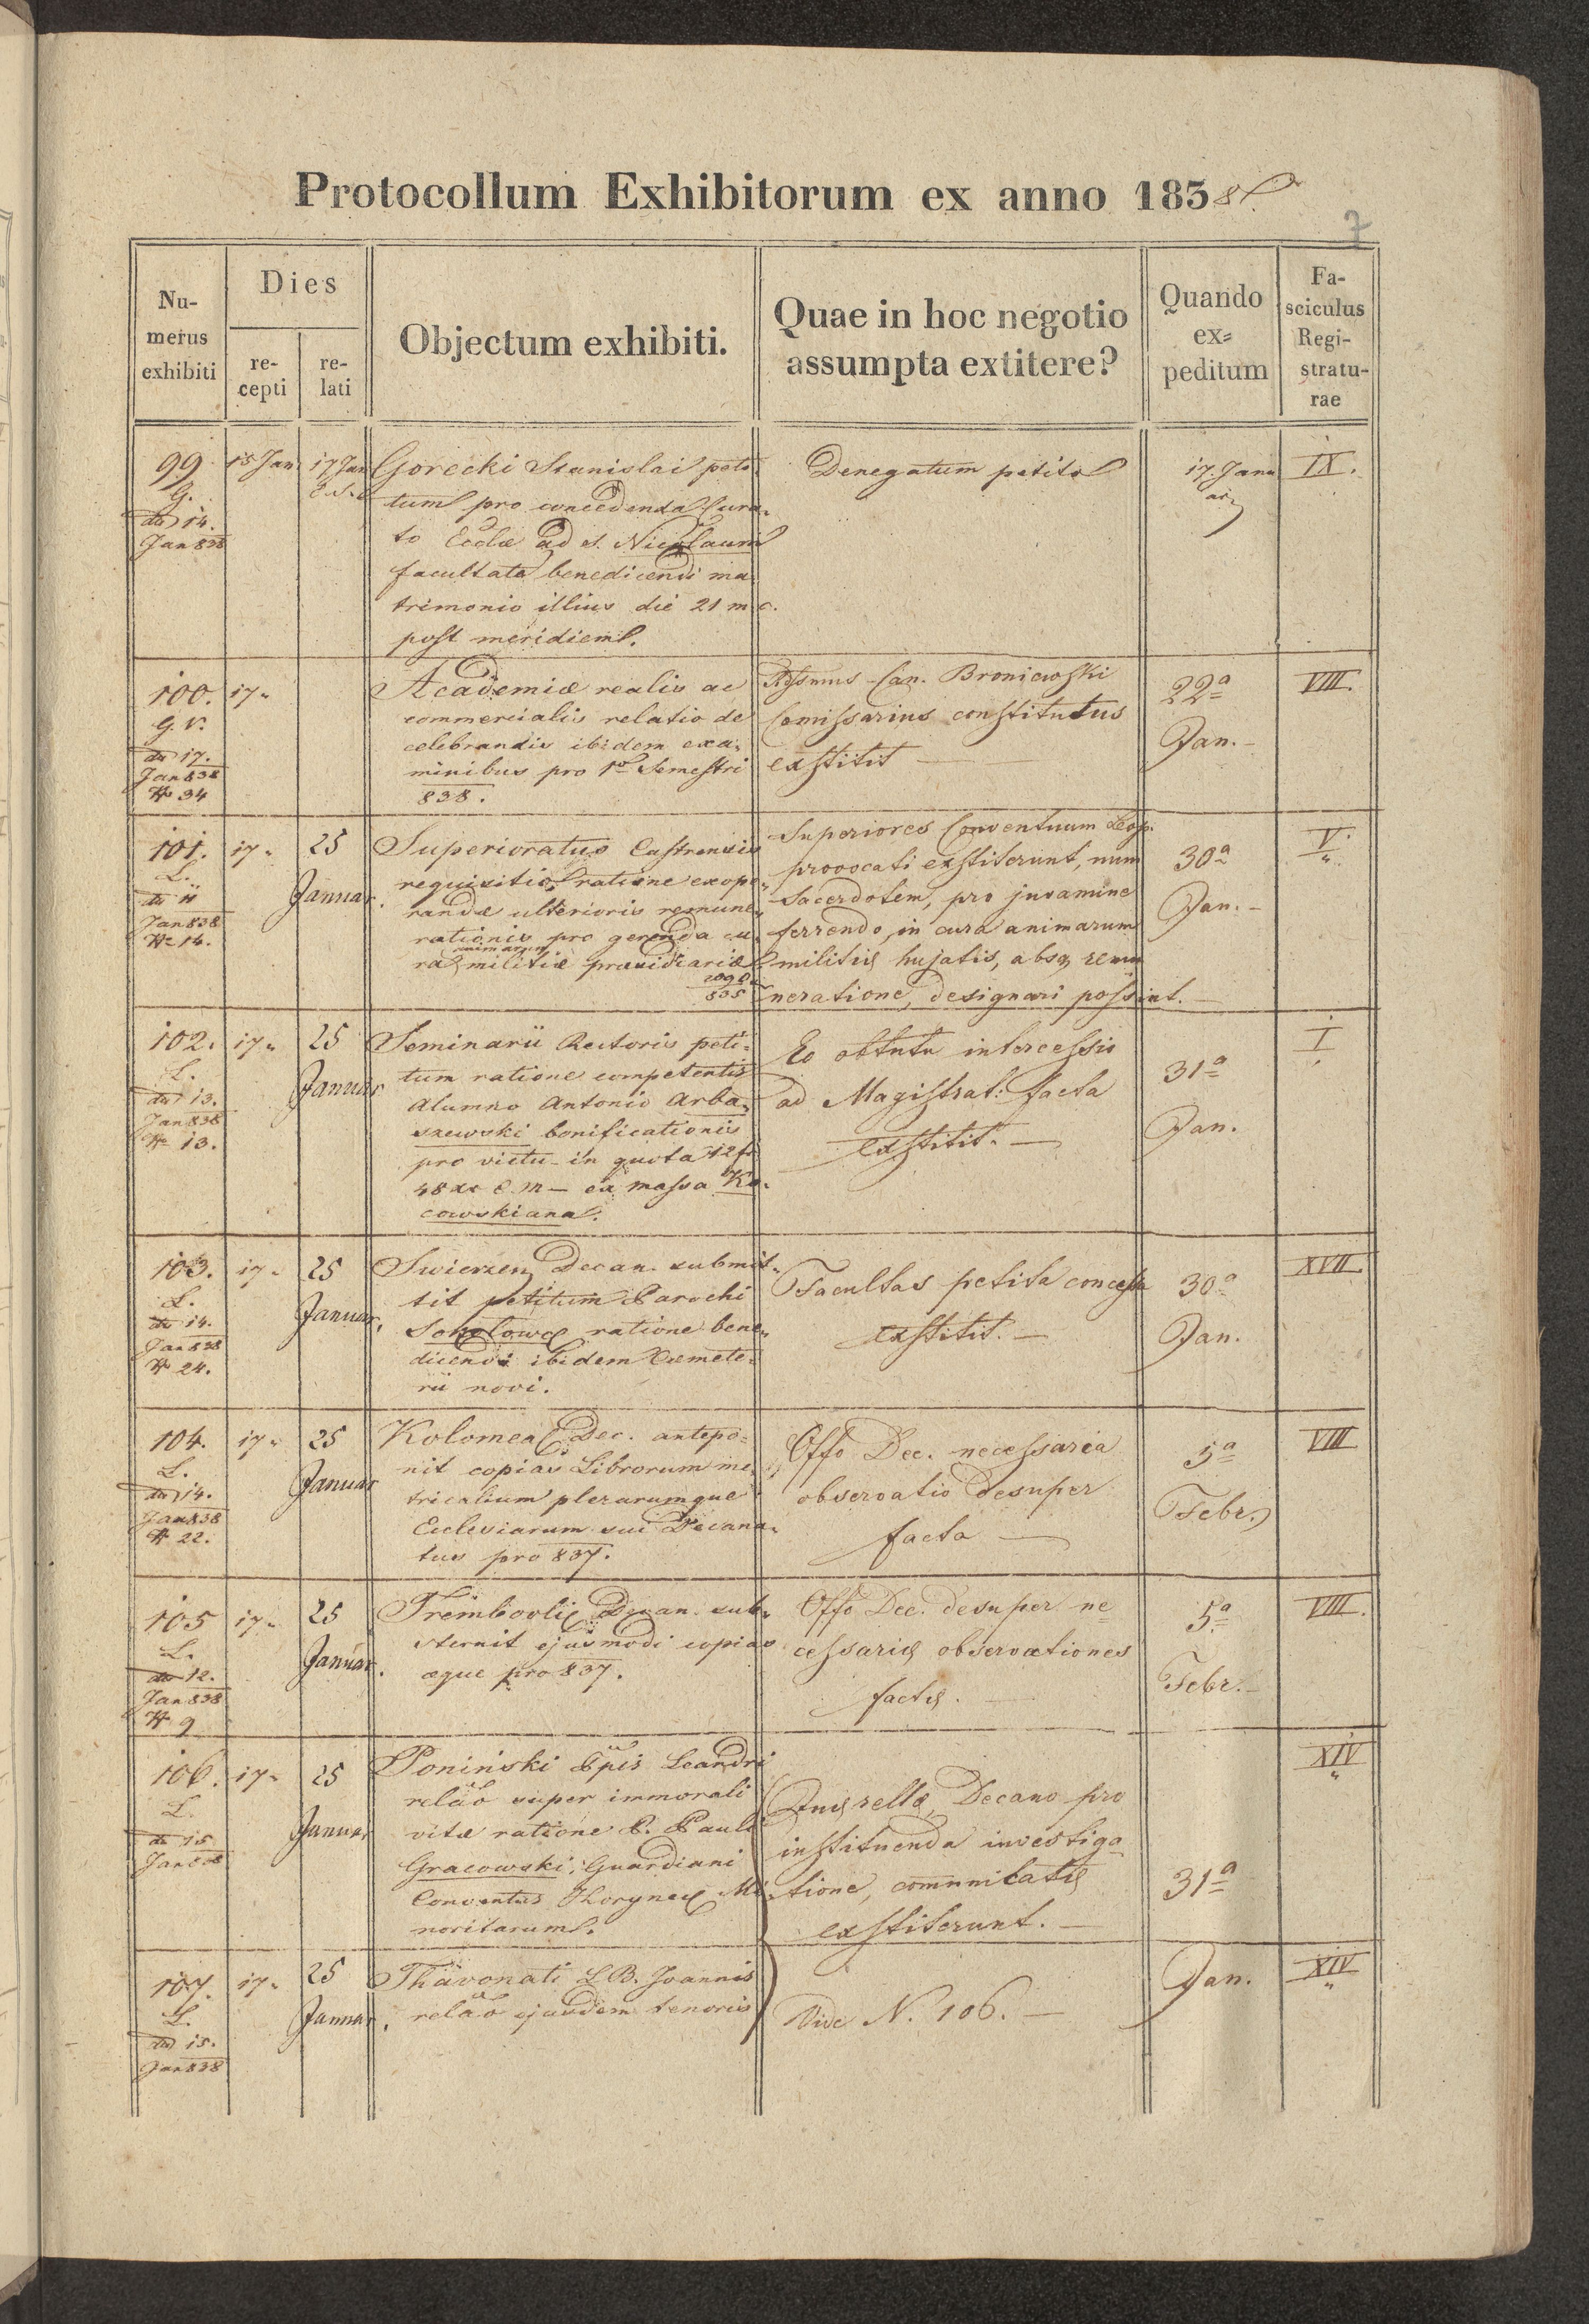 Protocollum Exhibitorum ex anno 1838
7
Numerus exhibiti
Dies
recepti
relati
Objectum exhibiti.
Quae in hoc negotio
assumpta extitere?
Quando
ex=
peditum
Fa-
sciculus
Regi-
stratu-
rae
99.
G.
dto 14.
Jan 838
15 Jan
17 Jan
Gorecki Stanislai peti
tum pro concedenda Cura=
to Ecclæ ad S. Nicolaum
facultate benedicendi ma
trimonio illius die 21 m. c.
post meridiem.
Denegatum petito
17. Janu
ar
IX.
100.
G. V.
dto 17.
Jan 838
N 34
17 "
Academiæ realis ac
commercialis relatio de
celebrandis ibidem exa=
minibus pro 1o Semestri
838.
Rssmus Can. Broniewski
Comissarius constitutus
exstitit —
22a
Jan. —
VIII.
101.
L.
dto 11
Jan 838
N 14.
17 "
25
Januar.
Superioratus Castrensis
requisitio ratione exope=
randæ ulterioris remune=
rationis pro gerenda cu=
animarum
ra militiæ præsidiariæ
835
Superiores Conventuum Leop.
provocati exstiterunt, num
Sacerdotem, pro juvamine
ferrendo, in cura animarum
militiæ hujatis, absq remu
neratione, designari possint. —
30a
Jan. —
V.
"
102.
L.
dto 13.
Jan 838
N 13.
17 "
25
Januar
Seminarii Rectoris peti=
tum ratione competentis
Alumno Antonio Arba=
szewski bonificationis
pro victu in quota 12 fr
48 xr C. M — ex massa Ko=
cowskiana.
Eo obtutu intercessio
ad Magistrat: facta
exstitit. —
31a
Jan.
I
103.
L.
dto 14.
Jan 838
N 24.
17 "
25
Januar.
Swierzen Decan. submit=
tit petitum Parochi
Sokolowæ ratione bene=
dicendi ibidem Cœmete=
rii novi.
Facultas petita concessa
exstitit. —
30a
Jan.
XVII.
104.
L.
dto 14.
Jan 838
N 22.
17 "
25
Januar
Kolomeaæ Dec. antepo=
nit copias Librorum me=
tricalium plerarumque
Ecclesiarum sui Decana=
tus pro 837.
Offo Dec. necessaria
observatio desuper
facta —
5a
Febr.
VIII
105
L.
dto 12.
Jan 838
N 9
17 "
25
Januar.
Tremboovliæ Decan. sub=
sternit ejusmodi copias
æque pro 837.
Offo Dec. desuper ne=
cessariæ observationes
factæ. —
5a
Febr. —
VIII.
106.
L.
dto 15
Jan 838
17 "
25
Januar
Poniński Ppis Leandri
relao super immorali
vitæ ratione P. Pauli
Gracowski, Guardiani
Conventus Horynecæ Mi=
noritarum.
Quærellæ, Decano pro
instituenda investiga=
tione, communicatæ
exstiterunt. —
31a
Jan.
XIV
"
107.
L.
dto 15.
Jan 838
17 "
25
Januar.
Thavonati L. B. Joannis
relao ejusdem tenoris
Vide N. 106. —
XIV
"